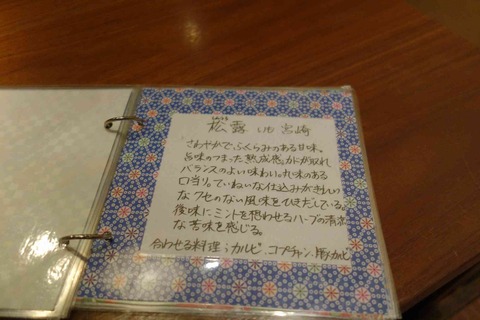 松露 いも 宮崎
さわやかで、ふくらみのある甘味。
旨味のつまった熟成感。かどが取れ
バランスのよい味わい。丸味のある
口当り。ていねいな仕込みがきれい
なクセのない風味をひきだしている。
後味にミントを想わせるハーブの清涼
な苦味を感じる。
合わせる料理;カルビ、コプチャン、豚カルビ